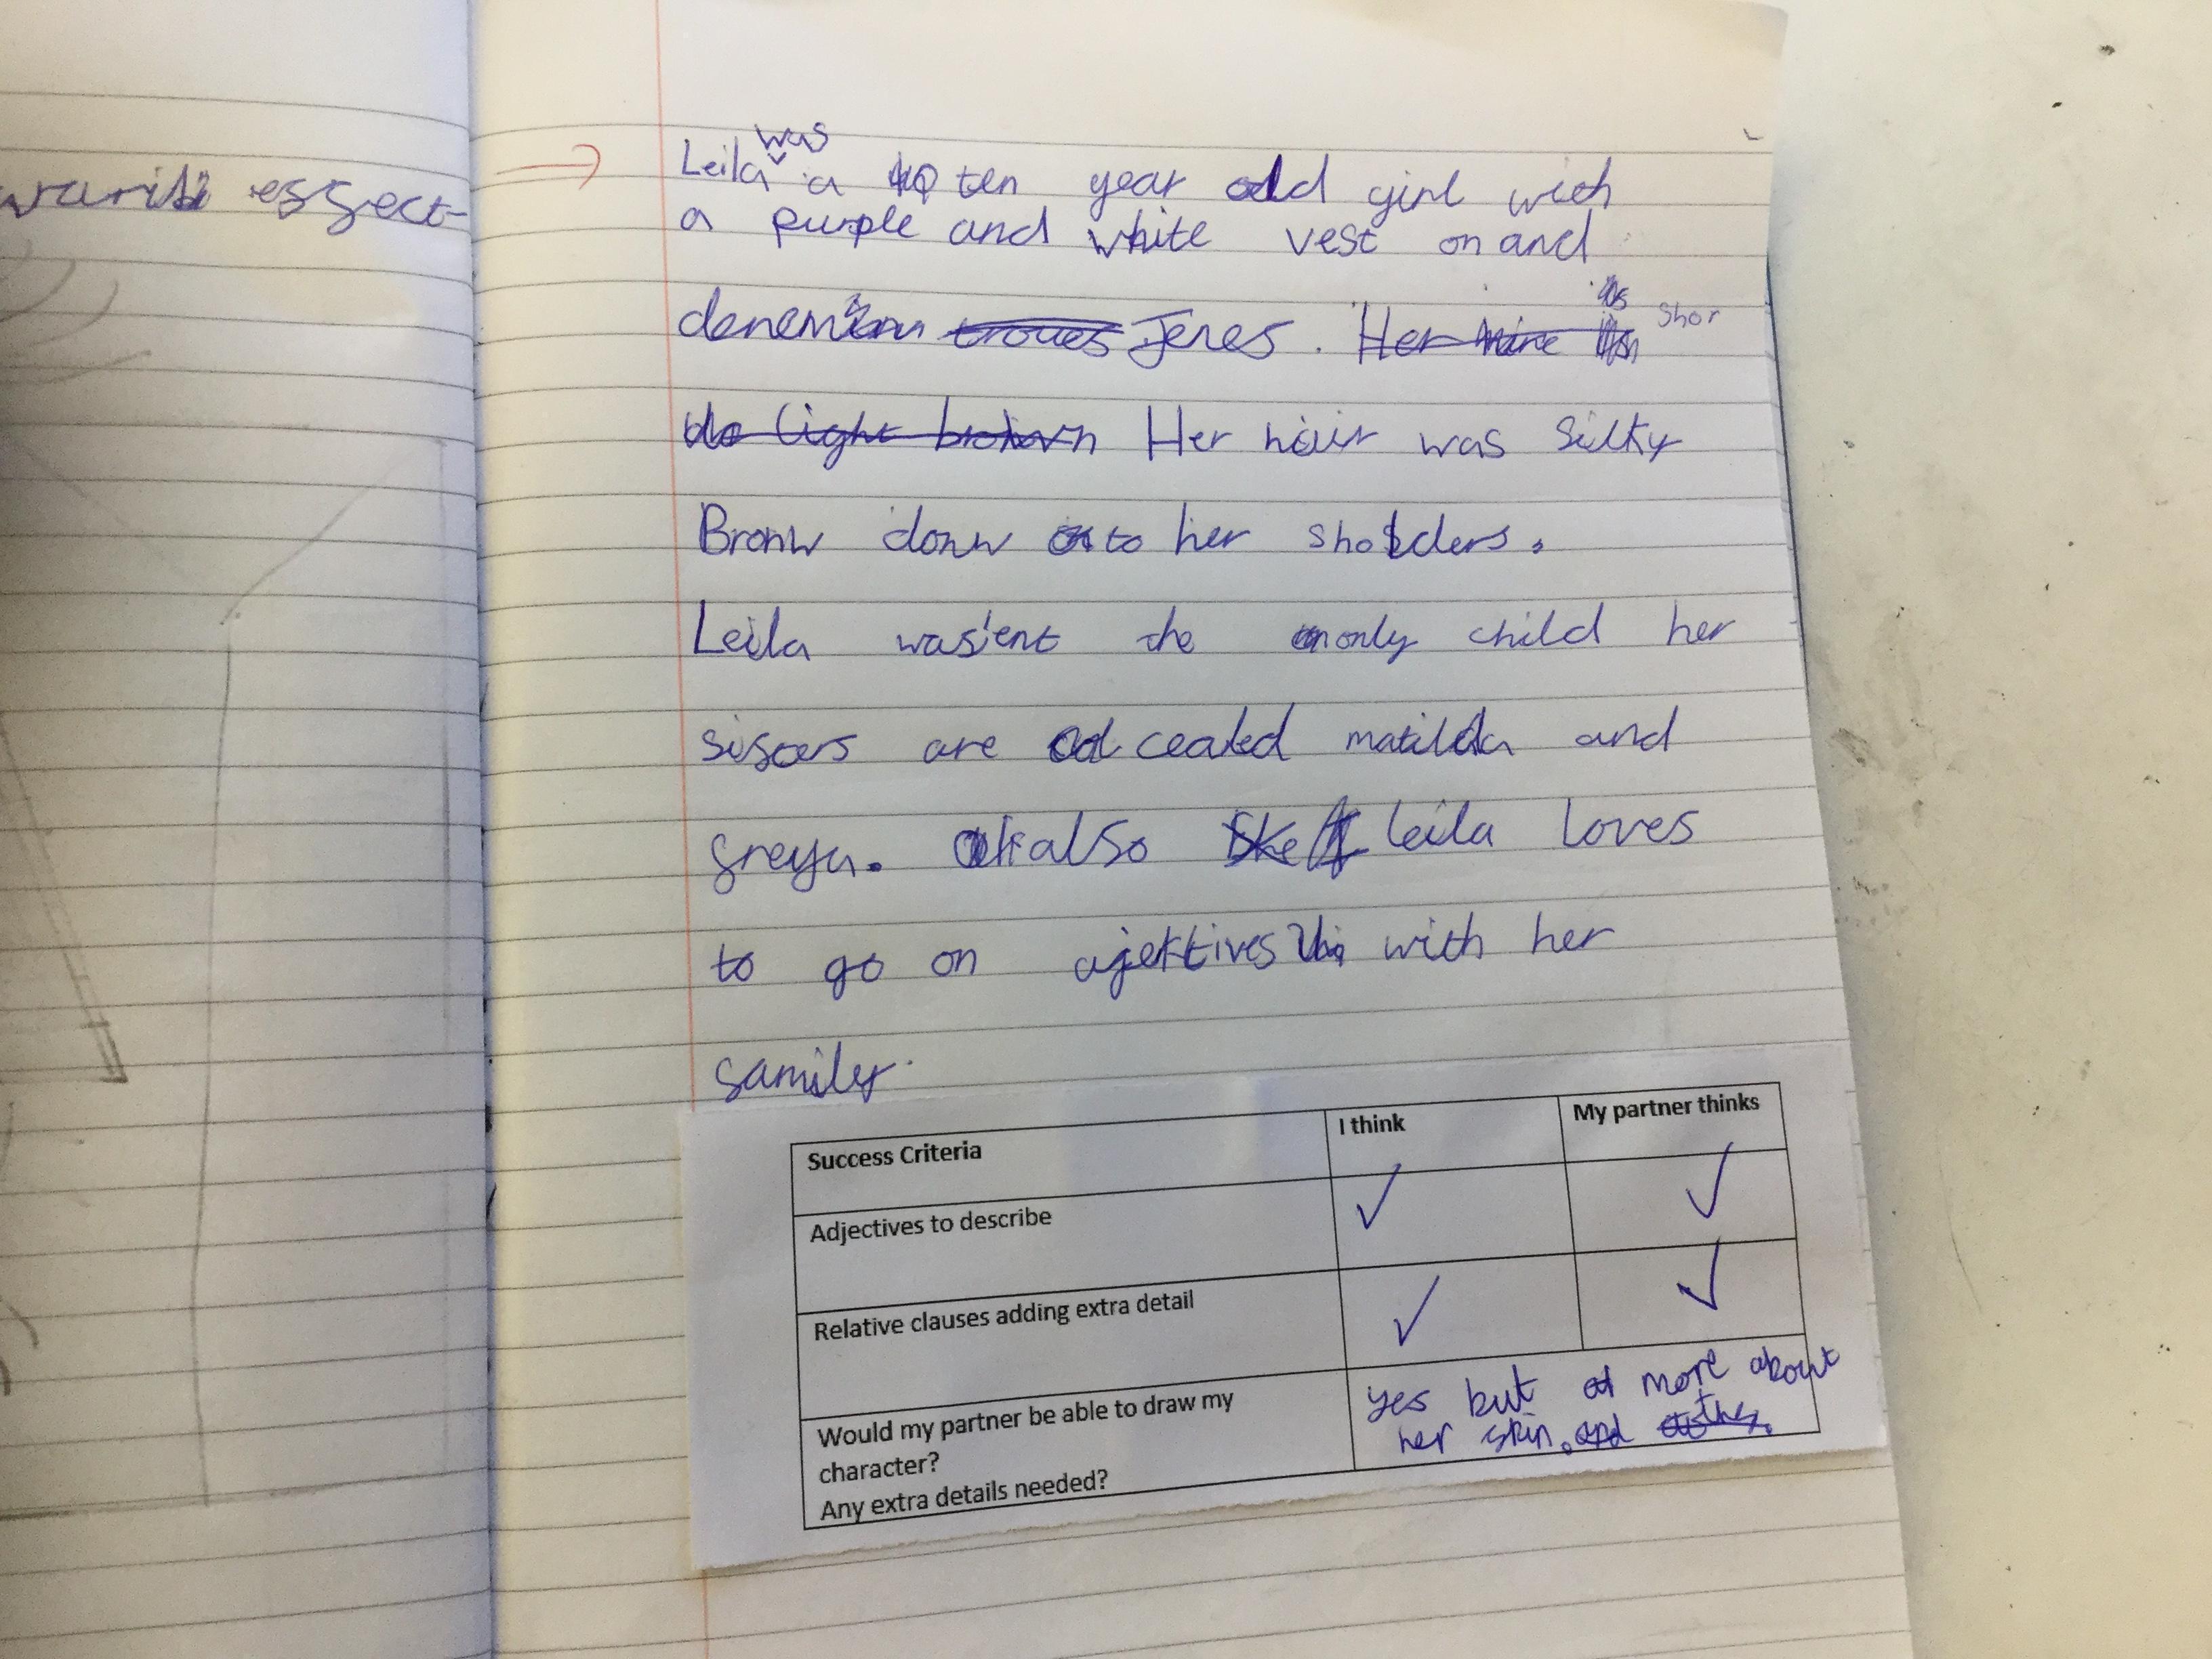 essect
was
Leila a ten year old girl with
a purple and white vest on and
denem Jenes. Her hire
Shor
light brown Her hair was silky
Bronw donw to her sholders.
Leila was'ent the only child her
sisoers are cealed matilda and
freya. also She leila loves
to go on ajektives with her
family.
Success Criteria I think My partner thinks
Adjectives to describe ✓ ✓
Relative clauses adding extra detail ✓ ✓
Would my partner be able to draw my
character?
Any extra details needed?
yes but more about
her skin. and